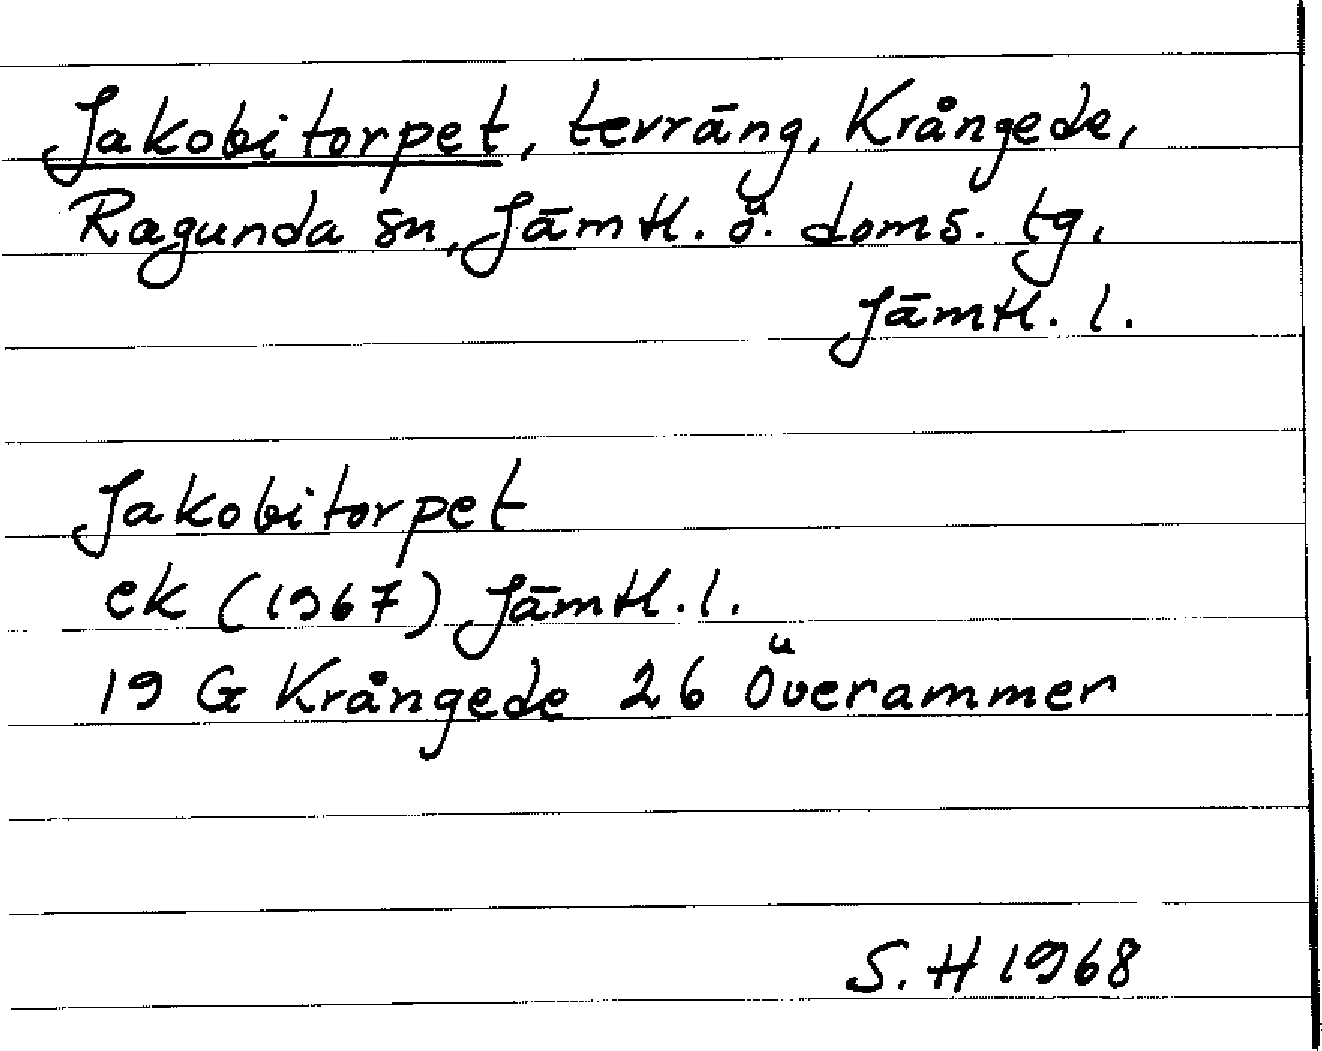 Jakobitorpet, terräng, Krångede,
Ragunda sn, Jämtl. ö. doms. tg.
Jämtl. l.
Jakobitorpet
ek (1967) Jämtl. l.
19 G Krångede 26 Överammer
S. H 1968